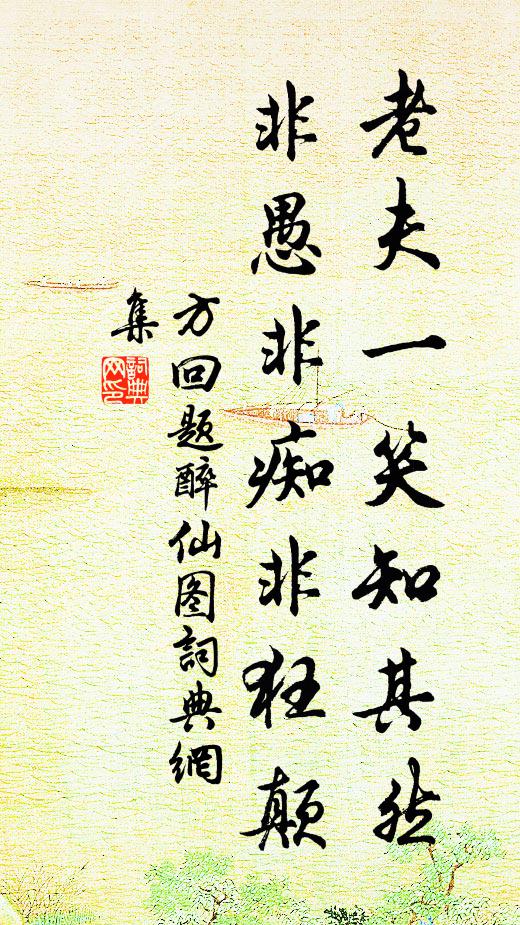 老夫一笑知其然
非愚非痴非狂颠
方回题醉仙图詞典網
集
詞典
网印